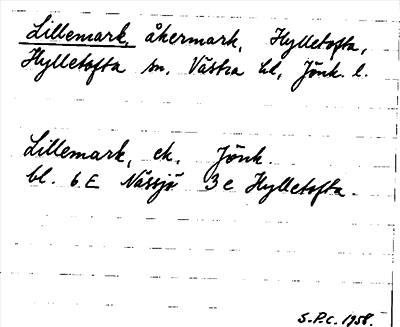 Lillemark, åkermark, Hylletofta,
Hylletofta sn. Västra hd, Jönk. l.
Lillemark, ek. Jönk.
bl. 6 E Nässjö 3 e Hylletofta.
S.P.C. 1958.